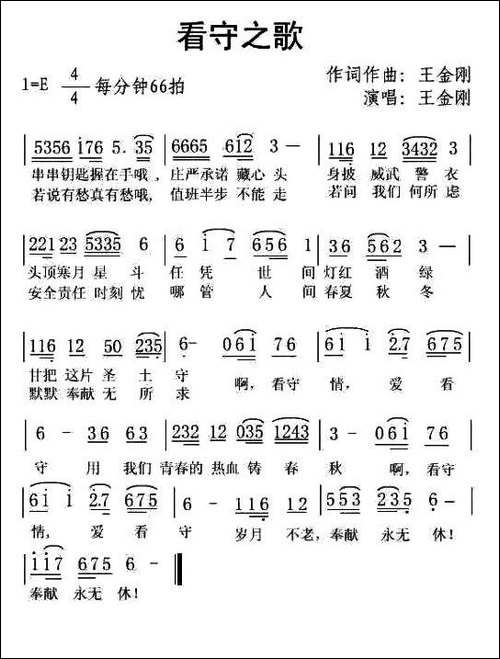 看守之歌
1=E 4/4 每分钟66拍
作词作曲：王金刚
演唱：王金刚
5356 i76 5. 35 | 6665 6i2 3 - | 116 12 3432 3
串串钥匙握在手哦，庄严承诺 藏心 头 身披 威武 警 衣
若说有愁真有愁哦，值班半步 不能 走 若问 我们 何所 虑
221 23 5335 6 | 6 i 7 656 | 36 562 3 -
头顶寒月 星 斗 任 凭 世 间 灯红 酒 绿
安全责任 时刻 忧 哪 管 人 间 春夏 秋 冬
116 12 50 235 | 6- 06i 76 | 6i i 2.7 675
甘把 这片 圣 土 守 啊，看守 情，爱 看
默默 奉献 无 所 求
6 - 36 63 | 232 12 035 1243 | 3 - 06i 76
守 用 我们 青春的 热血 铸 春 秋 啊，看守
6i i 2.7 675 | 6 - 116 12 | 553 235 6 -
情，爱 看 守 岁月 不老，奉献 永无 休！
ii7 675 6 -
奉献 永无 休！